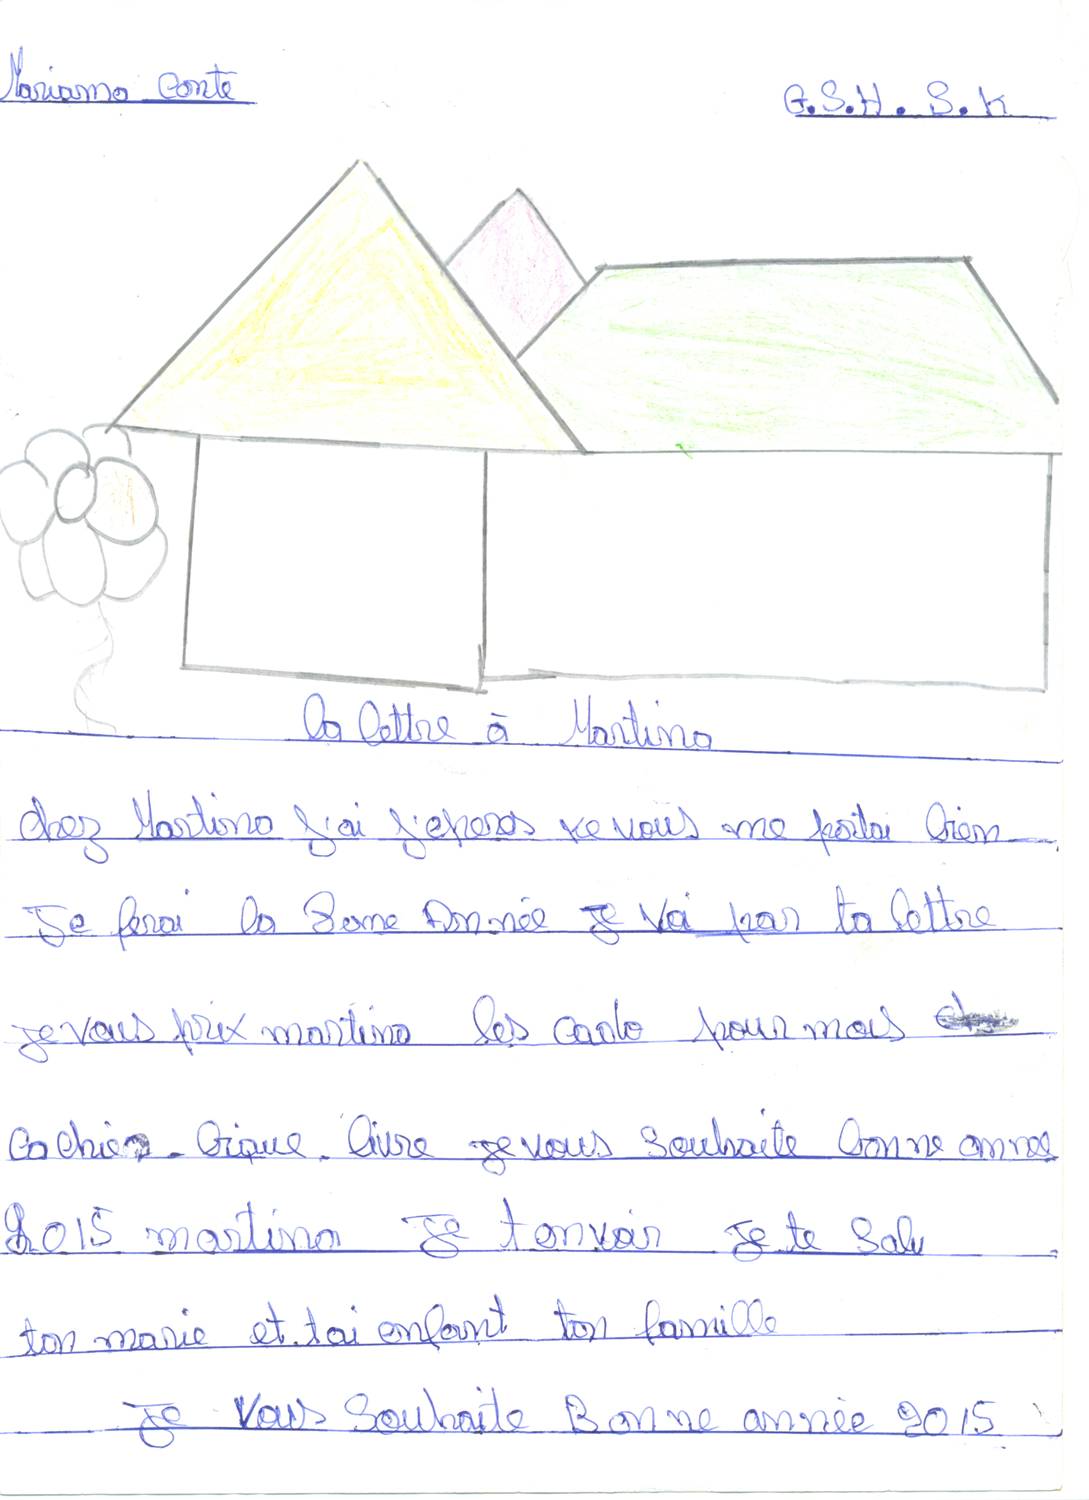 Mariama Conte
G.S.H.S.K
La lettre à Martina
chez Martina j'ai j'eperas ke vous me portai bien
Je ferai la 3eme Année Je vai par ta lettre
je vous prix martina les cado pour mois
Cachier - bique - livre je vous souhaite bonne anneé
2015 martina Je t'envoir Je te Salu
ton marie et tai enfant ton famille
Je vous Souhaite Bonne année 2015